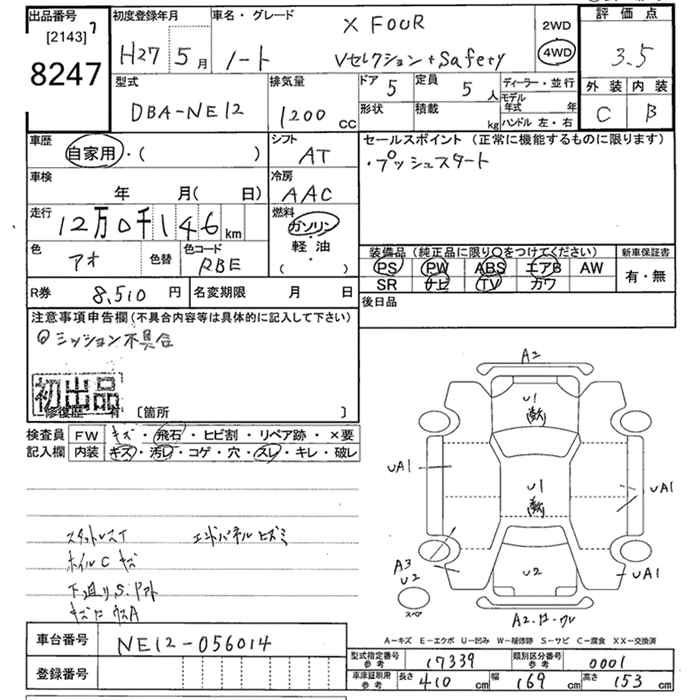 出品番号 初度登録年月 車名・グレード X FOUR 2WD 評価点
[2143] 7 H27 5月 ノート Vセレクション+Safety 4WD 3.5
8247 外装 内装
型式 排気量 ドア 5 定員 5人 ディーラー・並行 C B
DBA-NE12 1200cc 形状 積載 kg モデル年式 年
ハンドル 左・右
車歴 自家用・( ) シフト AT セールスポイント (正常に機能するものに限ります)
・プッシュスタート
車検 年 月( 日) 冷房 AAC
走行 12万0千146km 燃料 ガソリン
軽・油
( ・ )
色 アオ 色替 色コード RBE 装備品 (純正品に限り○をつけてください) 新車保証書
PS PW ABS エアB AW 有・無
SR ナビ TV カワ
R券 8,510円 名変期限 月 日 後日品
注意事項申告欄(不具合内容等は具体的に記入して下さい)
ミッション不具合
初出品
修復歴 有 [箇所 ]
検査員 FW キズ・飛石・ヒビ割・リペア跡・×要
記入欄 内装 キズ・汚レ・コゲ・穴・スレ・キレ・破レ
A2
U1
UA1
U1
UA1
A3
U2
U2
UA1
スペア
スタットレスT エンドパネルヒズミ
ホイルC キズ
下廻りS.
A-キズ E-エクボ U-凹み W-補修跡 S-サビ C-腐食 XX-交換済
車台番号 NE12-056014
登録番号
型式指定番号 参考 17339 類別区分番号 参考 0001
車庫証明用 参考 長さ 410cm 幅 169cm 高さ 153cm